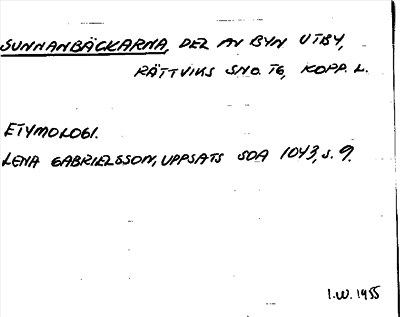 SUNNANBÄCKARNA, DEL AV BYN UTBY,
RÄTTVIKS SND. TG, KOPP. L.
ETYMOLOGI.
LENA GABRIELSSON, UPPSATS SOA 1043, s. 9.
I.W. 1955